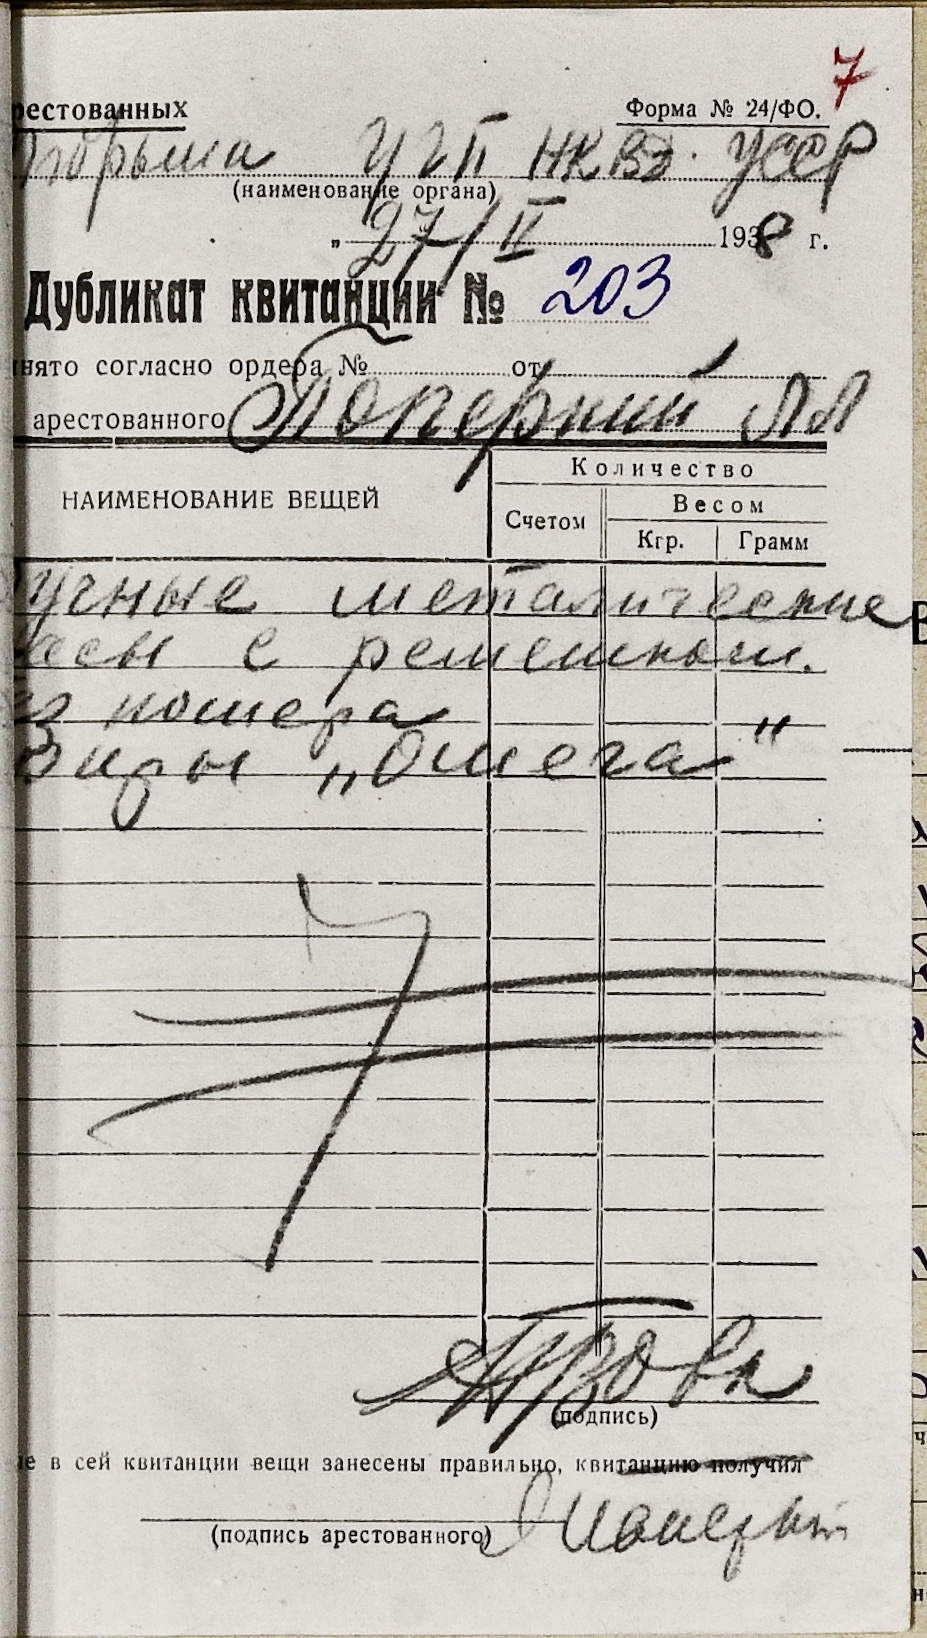 7
рестованных Форма № 24/ФО.
УГБ НКВД УССР
(наименование органа)
„ 27/II 1938 г.
Дубликат квитанции № 203
нято согласно ордера № от
арестованного Поперний
НАИМЕНОВАНИЕ ВЕЩЕЙ
Количество
Счетом
Весом
Кгр. Грамм
учные металические
асы с ремешком.
ез номера
фиры „Омега"
(подпись)
е в сей квитанции вещи занесены правильно, квитанцию получил
(подпись арестованного)